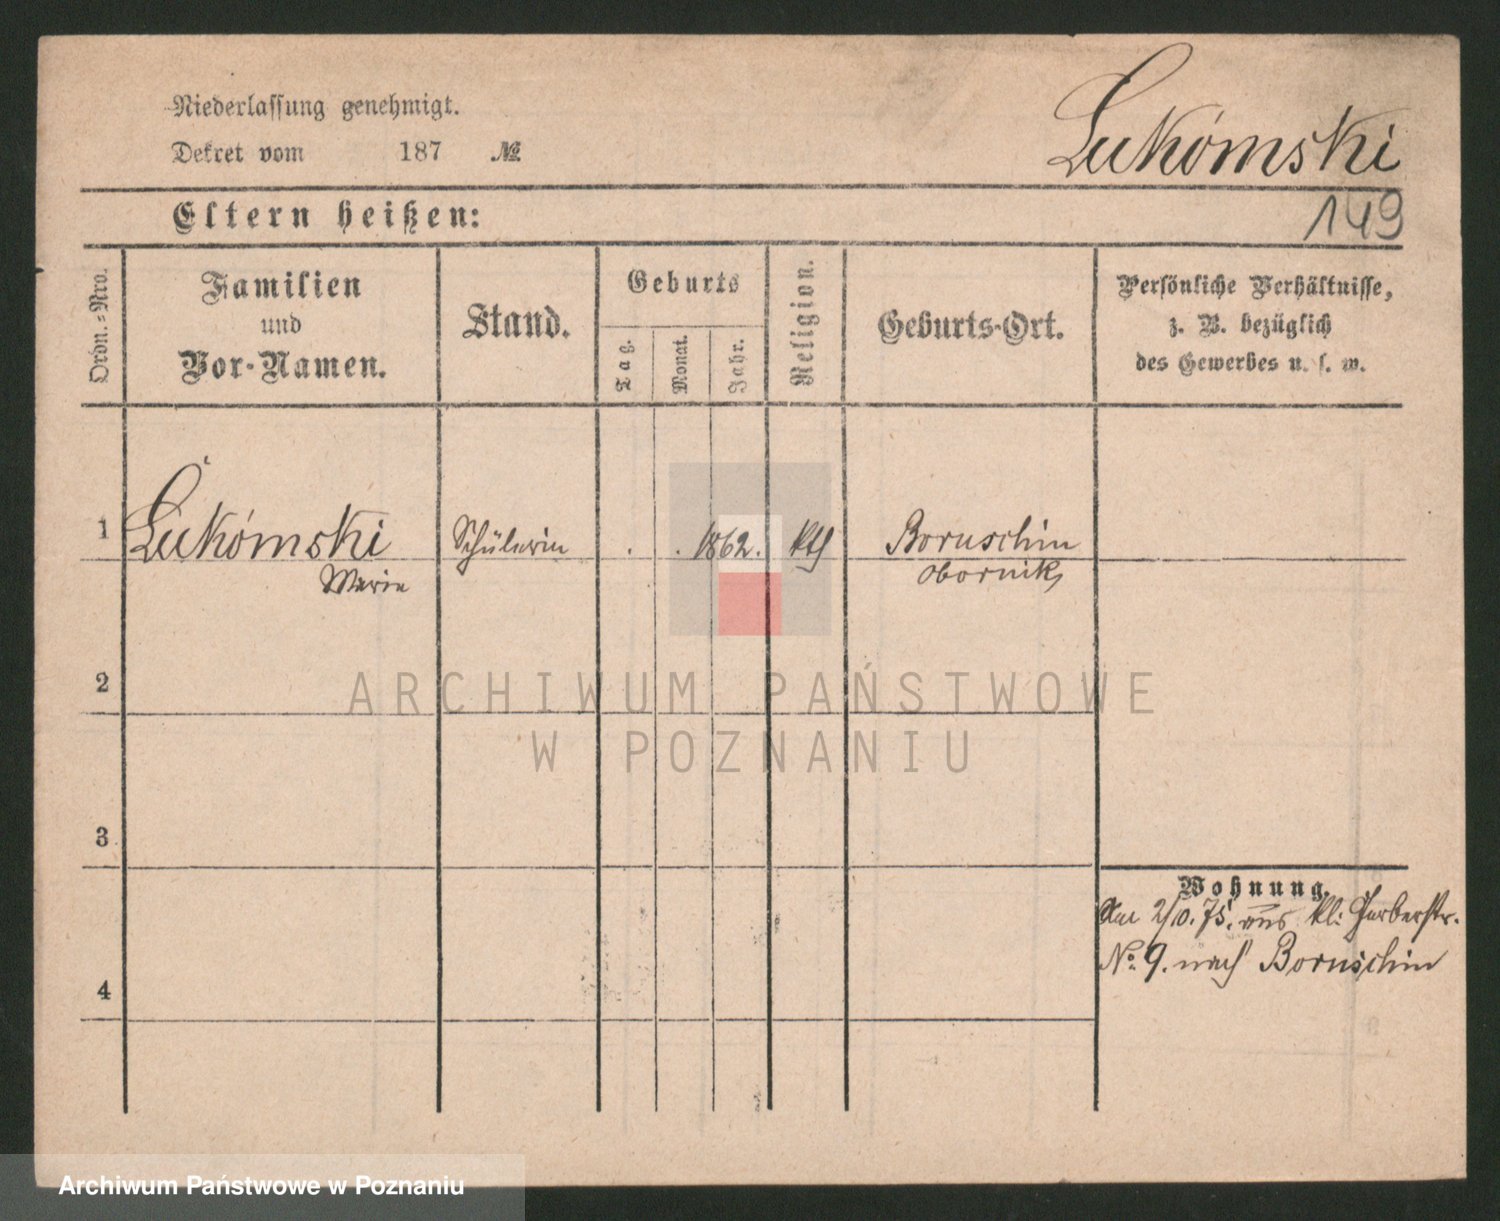 Niederlassung genehmigt.
Dekret vom 187 №
Lukómski
149
Eltern heißen:
Ordn.=Nro.
Familien
und
Vor-Namen.
Stand.
Geburts
Tag.
Monat.
Jahr.
Religion.
Geburts-Ort.
Persönliche Verhältnisse,
z. B. bezüglich
des Gewerbes u. s. w.
1 Lukómski Schülerin . . 1862. kth Boruschin
Marie Obornik
2
ARCHIWUM PAŃSTWOWE
W POZNANIU
3
Wohnung.
Am 2/10. 75. aus kl: Gerberstr.
No. 9. nach Boruschin
4
Archiwum Państwowe w Poznaniu